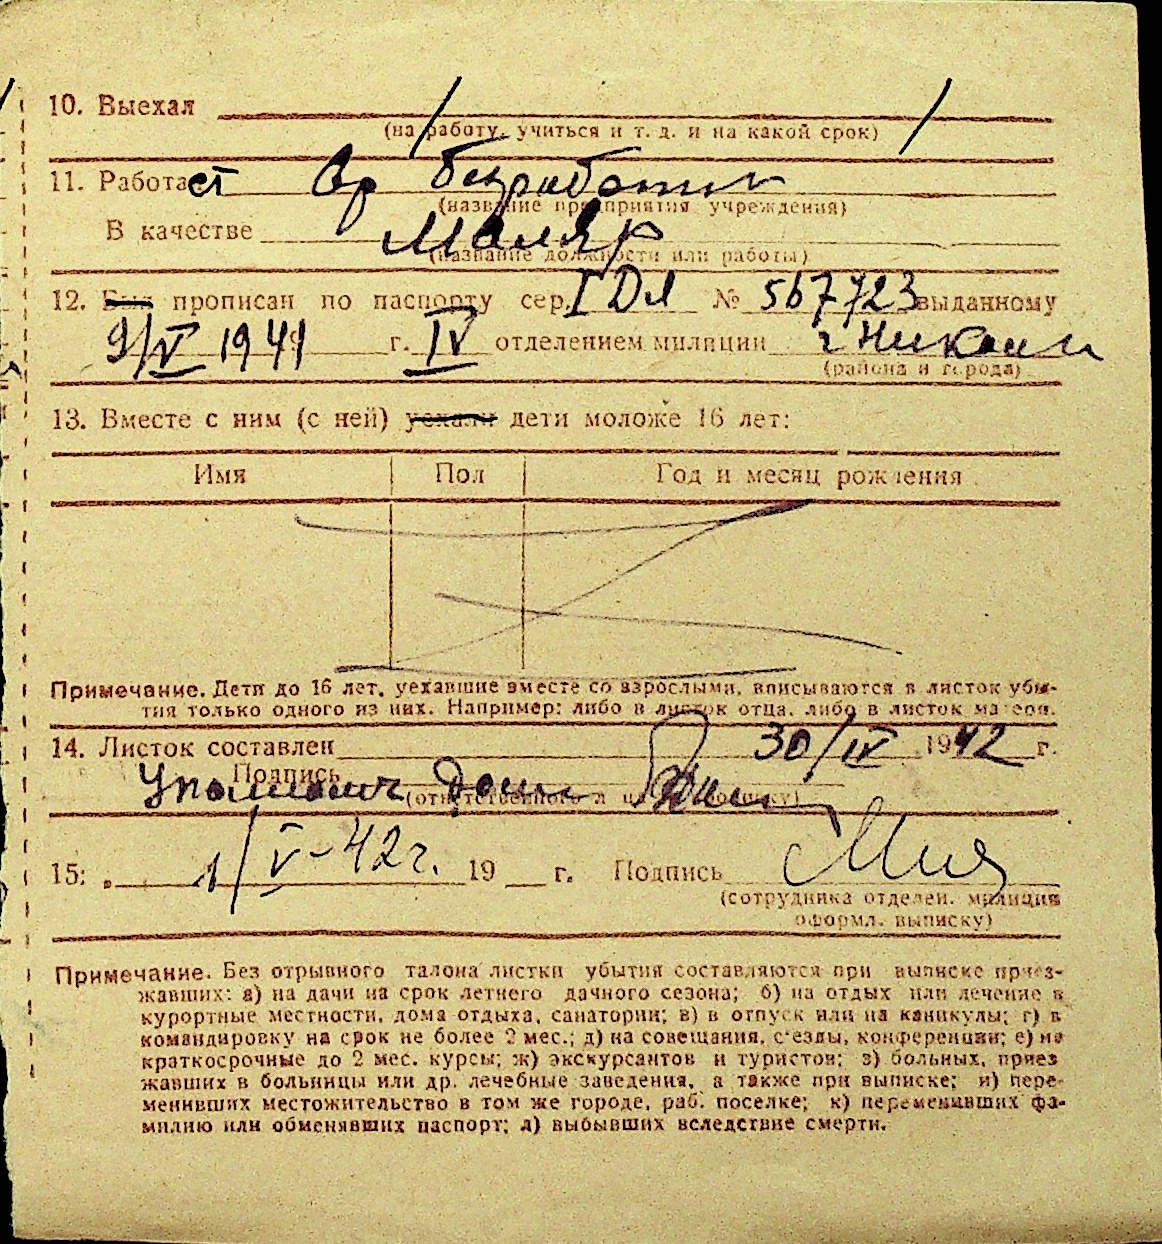 10. Выехал
(на работу, учиться и т. д. и на какой срок)
11. Работает Вр безработн
(название предприятия, учреждения)
В качестве Маляр
(название должности или работы)
12. Был прописан по паспорту сер. I ДЛ № 567723 выданному
9/V 1941 г. IV отделением милиции г Никол
(района и города)
13. Вместе с ним (с ней) уехали дети моложе 16 лет:
Имя Пол Год и месяц рождения
Примечание. Дети до 16 лет, уехавшие вместе со взрослыми, вписываются в листок убы-
тия только одного из них. Например: либо в листок отца, либо в листок матери.
14. Листок составлен 30/IV 1942 г.
Подпись
15: 1/V-42г. 19 г. Подпись
(сотрудника отделен. милиции
оформл. выписку)
Примечание. Без отрывного талона листки убытия составляются при выписке приез-
жавших: а) на дачи на срок летнего дачного сезона; б) на отдых или лечение в
курортные местности, дома отдыха, санатории; в) в отпуск или на каникулы; г) в
командировку на срок не более 2 мес.; д) на совещания, съезды, конференции; е) на
краткосрочные до 2 мес. курсы; ж) экскурсантов и туристов; з) больных, приез
жавших в больницы или др. лечебные заведения, а также при выписке; и) пере-
менивших местожительство в том же городе, раб. поселке; к) переменивших фа-
милию или обменявших паспорт; л) выбывших вследствие смерти.